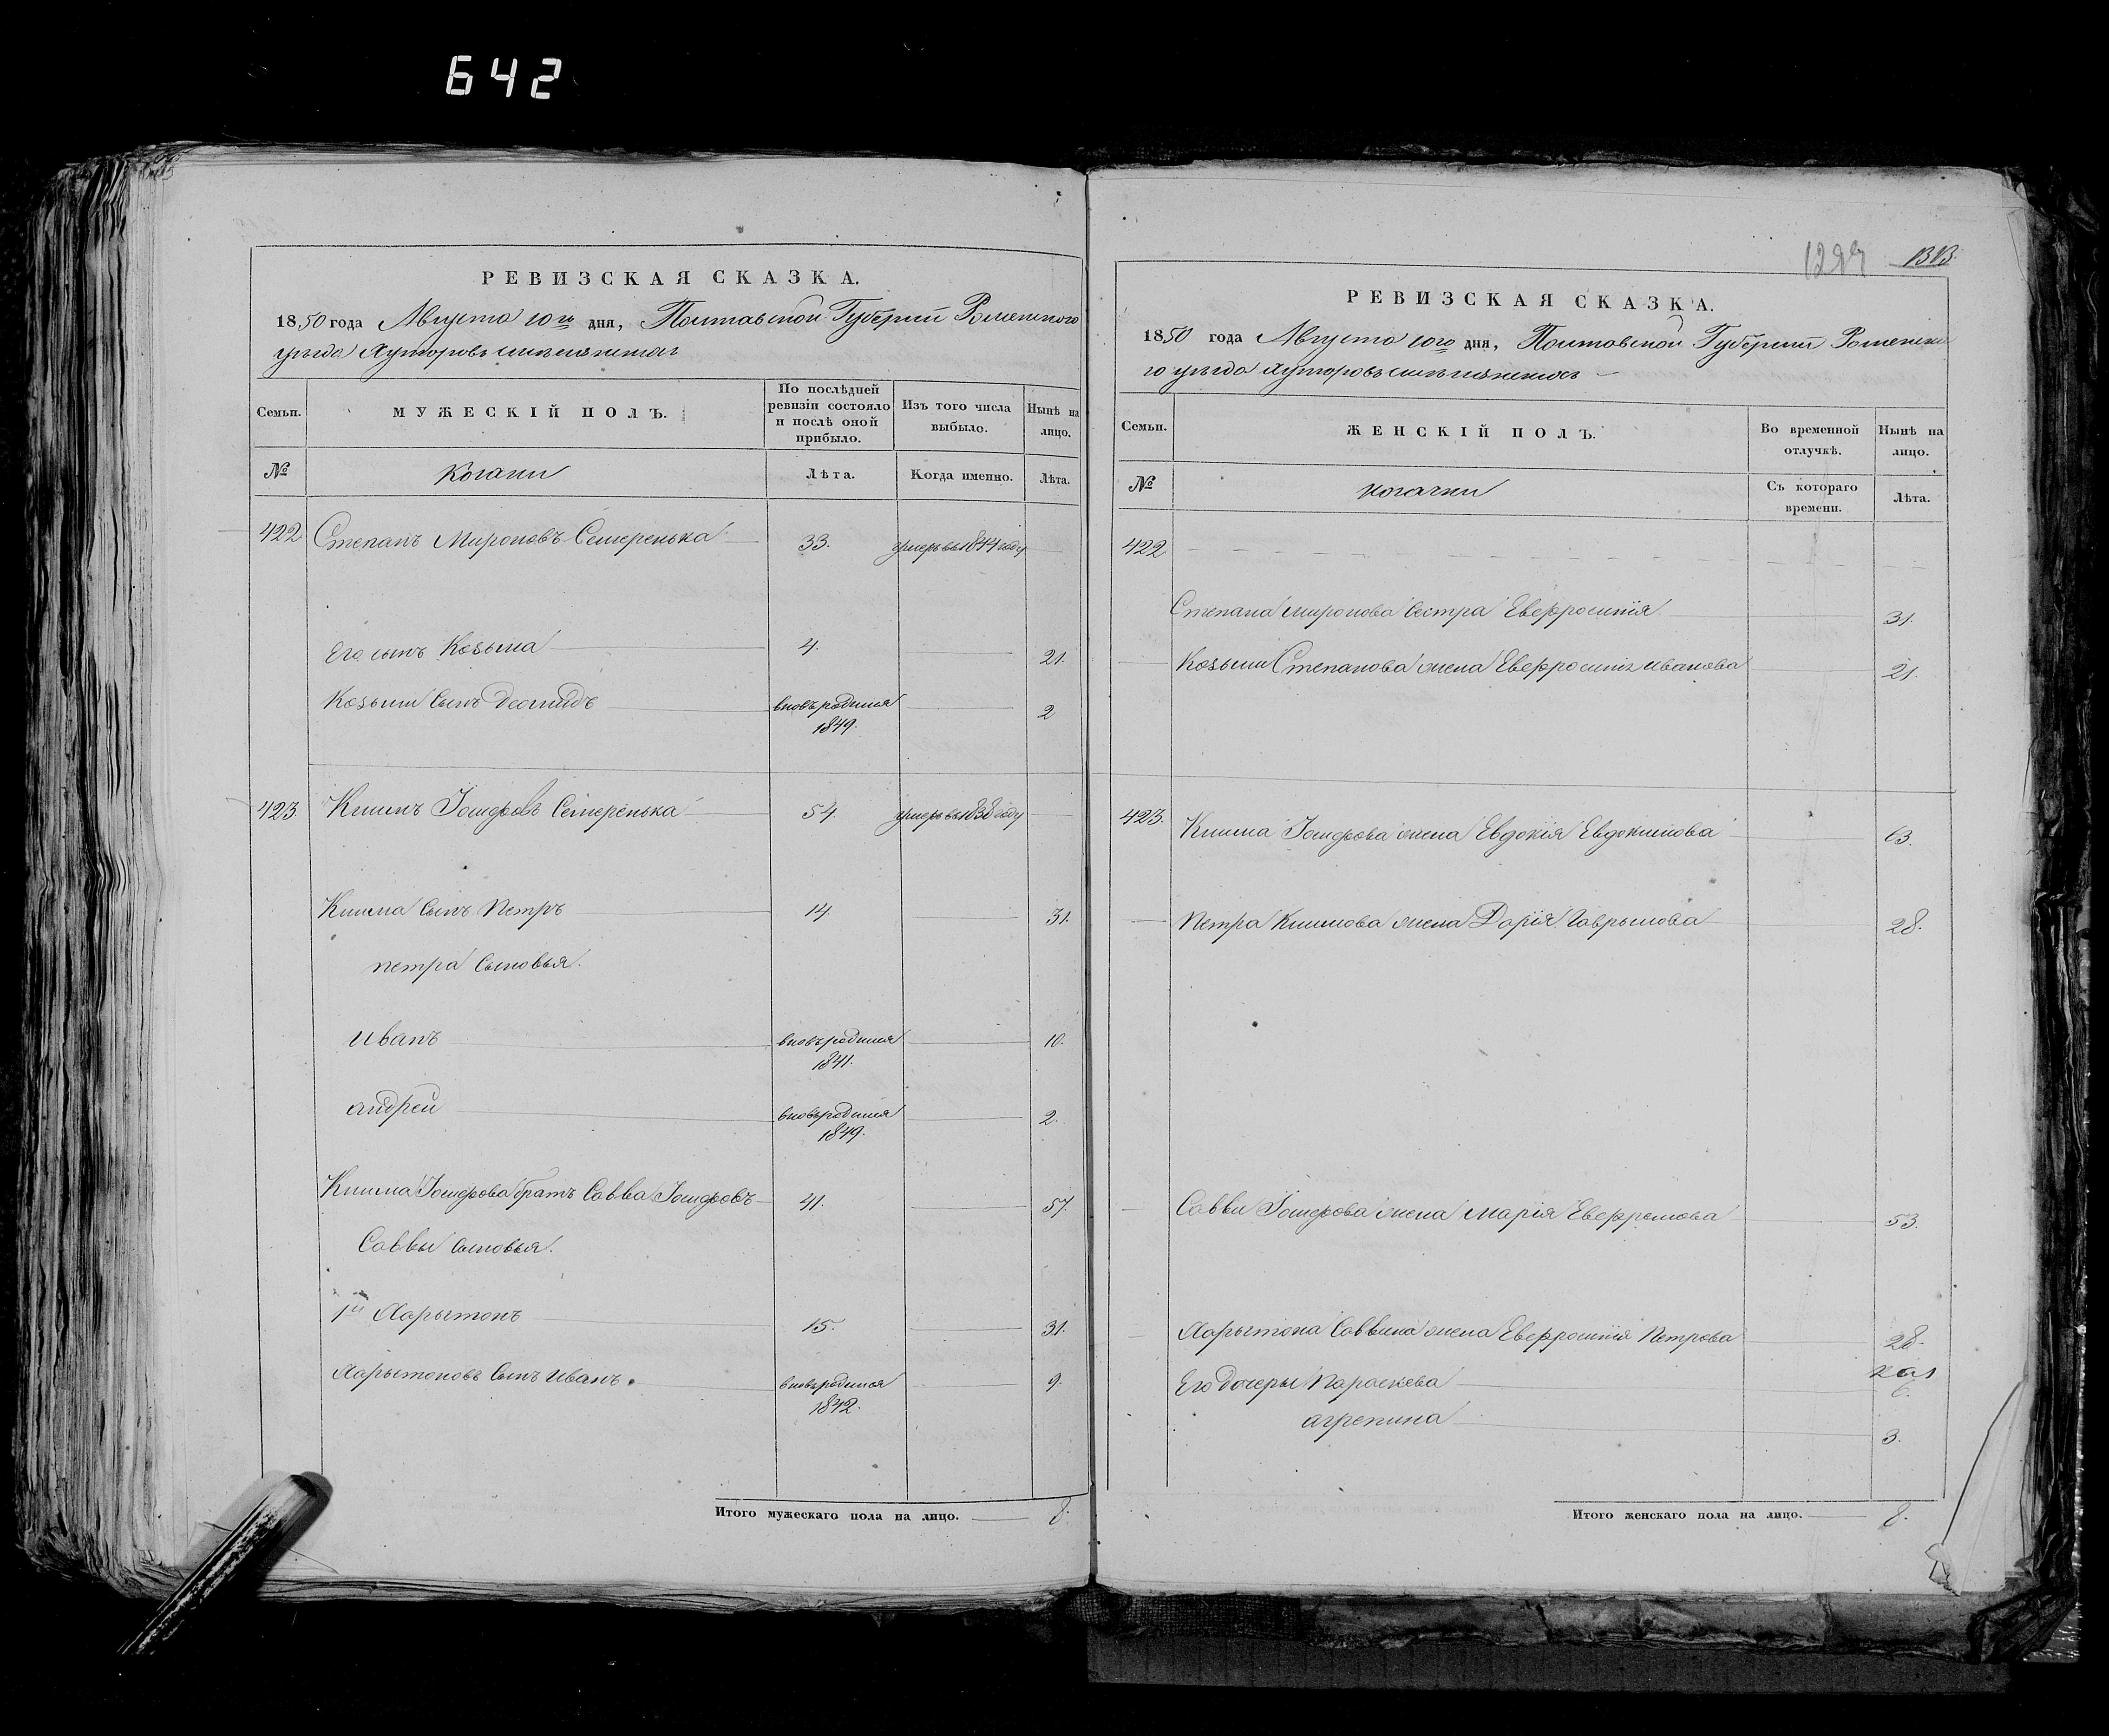 642
РЕВИЗСКАЯ СКАЗКА.
1850 года Августа 10го дня, Полтавской Губернии Роменского
уезда Хуторовъ
Семьи.
МУЖЕСКІЙ ПОЛЪ.
По послѣдней ревизіи состояло и послѣ оной прибыло.
Изъ того числа выбыло.
Нынѣ на лицо.
№
Козаки
Лѣта.
Когда именно.
Лѣта.
422 Степанъ Мироновъ Семеренька 33. умеръ въ 1844 году
Его сынъ Козьма 4. 21.
Козьми Сынъ Деомидъ вновь родился 2
1849.
423. Климъ Іосифовъ Семеренька 54. умеръ въ 1838 году
Клима Сынъ Петръ 14. 31.
петра Сыновья.
Иванъ вновь родился 10.
1841.
андрей вновь родился 2.
1849.
Клима Іосифова братъ Савва Іосифовъ 41. 57.
Саввы Сыновья.
1й Харытонъ 15. 31.
Харытоновъ Сынъ Иванъ. вновь родился 9.
1842.
Итого мужескаго пола на лицо. 8.
1313.
РЕВИЗСКАЯ СКАЗКА.
1850 года Августа 10го дня, Полтавской Губерний Роменска
го уезда Хуторовъ
Семьи.
ЖЕНСКІЙ ПОЛЪ.
Во временной отлучкѣ.
Нынѣ на лицо.
№
козачки
Съ котораго времени.
Лѣта.
422
Степана миронова Сестра Евфросинія 31.
Козьми Степанова жена Евфросинія иванова 21.
423. Клима Іосифова жена Евдокія Евдокимова 63.
Петра Климова жена Дарія Гаврылова 28.
Савви Іосифова жена Марія Евфремова 53.
Харытона Саввина жена Евфросинія Петрова 28.
Его дочеры Параскева 6.
агрепина 3.
Итого женскаго пола на лицо. 8.